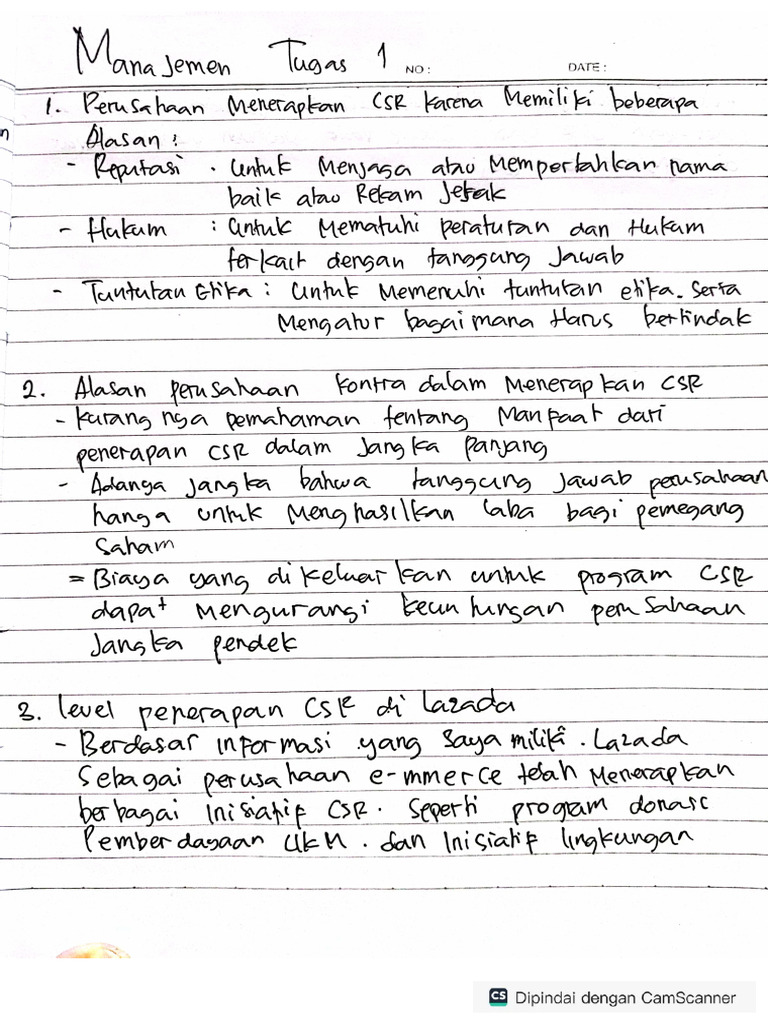 Manajemen Tugas 1 NO: DATE:
1. Perusahaan Menerapkan CSR karena Memiliki beberapa
n
Alasan:
- Reputasi . Untuk Menjaga atau Mempertahkan nama
baik atau Rekam Jejak
- Hukum : Untuk Mematuhi peraturan dan Hukum
terkait dengan tanggung Jawab
- Tuntutan Etika : Untuk Memenuhi tuntutan etika. Serta
Mengatur bagaimana Harus bertindak
2. Alasan perusahaan kontra dalam Menerapkan CSR
- kurang nya pemahaman tentang Manfaat dari
penerapan CSR dalam Jangka Panjang
- Adanya jangka bahwa tanggung Jawab perusahaan
hanya untuk Menghasilkan laba bagi pemegang
Saham
= Biaya yang di keluarkan untuk program CSR
dapat Mengurangi keuntungan perusahaan
Jangka pendek
3. level penerapan CSR di Lazada
- Berdasar informasi yang saya miliki. Lazada
Sebagai perusahaan e-mmerce telah Menerapkan
berbagai Inisiatif CSR. Seperti program donasi
Pemberdayaan UKM. dan Inisiatif lingkungan
CS Dipindai dengan CamScanner